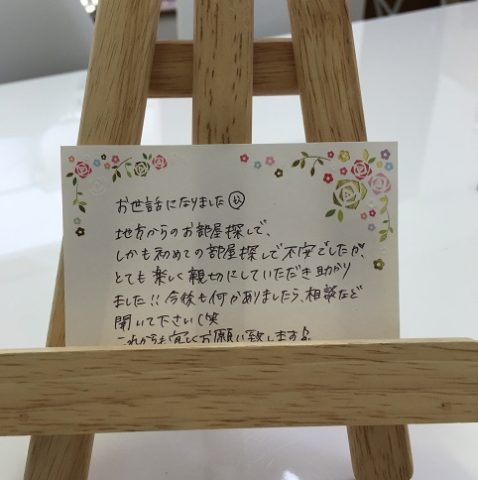 お世話になりました
地方からのお部屋探しで、
しかも初めての部屋探しで不安でしたが、
とても楽しく親切にしていただき助かり
ました!!今後も何かありましたら、相談など
聞いて下さい(笑
これからも宜しくお願い致します